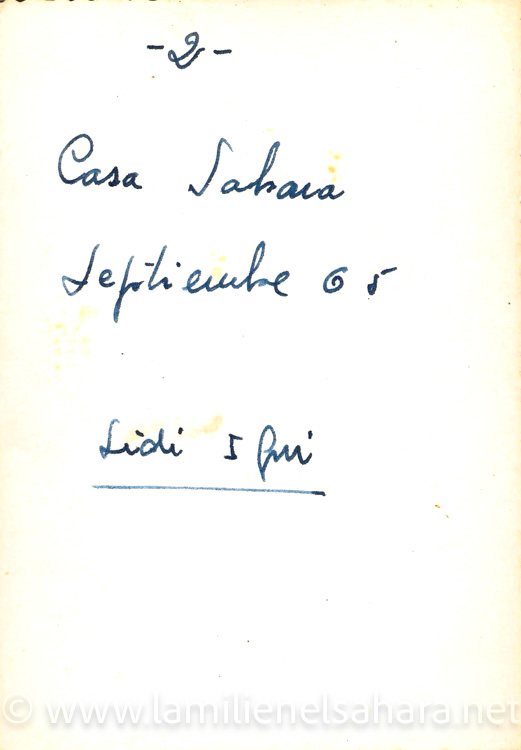 -2-
Casa Sahara
Septiembre 65
Sidi Ifni
© www.lamilienelsahara.net